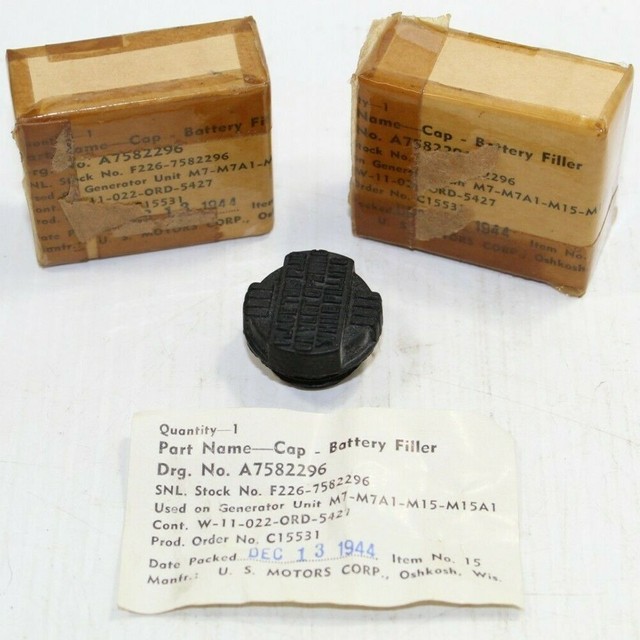 No. A7582296
SNL. Stock No. F226-7582296
Generator Unit M7-M7A1-M
W-11-022-ORD-5427
C15531
1 3 1944
Manfr: U. S. MOTORS CORP.,
Name—Cap - Battery Filler
No.
M7-M7A1-M15-M
W-11-022-
ORD-5427
Order No. C15531
Packed
1944 Item No.
U. S. MOTORS CORP., Oshkosh
Quantity—1
Part Name—Cap - Battery Filler
Drg. No. A7582296
SNL. Stock No. F226-7582296
Used on Generator Unit M7-M7A1-M15-M15A1
Cont. W-11-022-ORD-5427
Prod. Order No. C15531
Date Packed DEC 13 1944 Item No. 15
Manfr.: U. S. MOTORS CORP., Oshkosh, Wis.